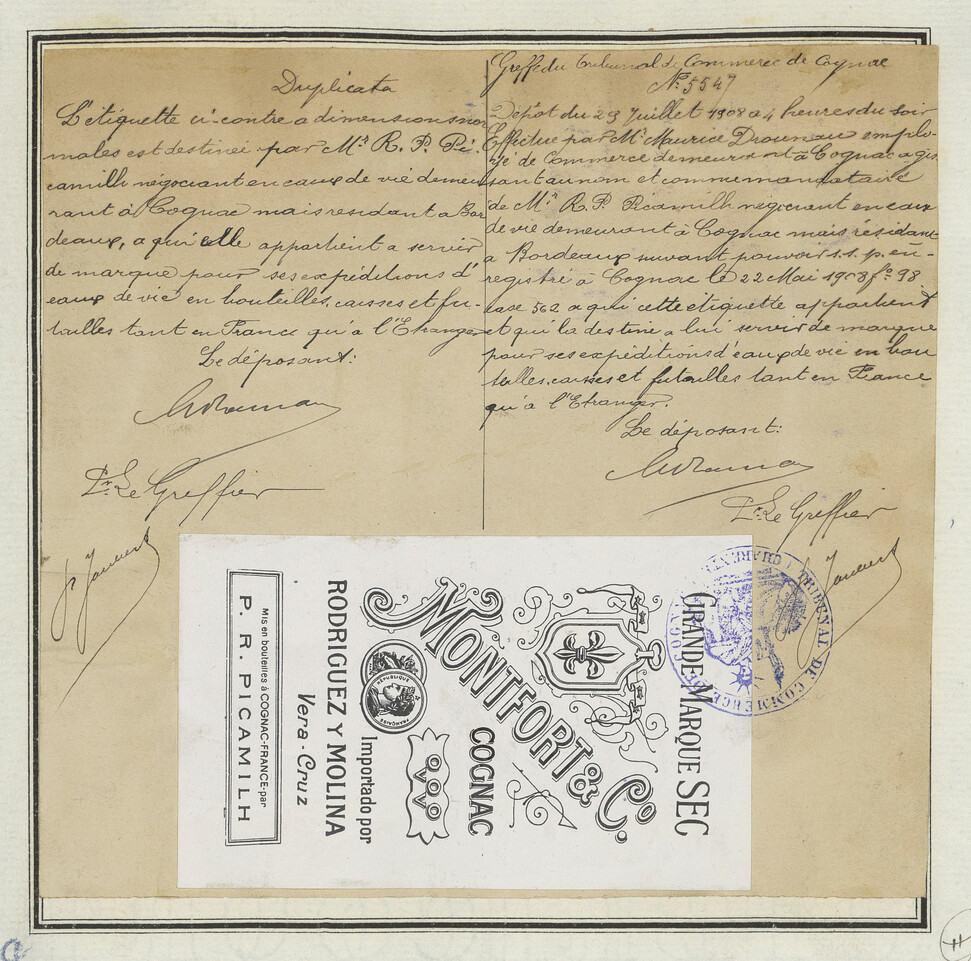 Duplicata
L'étiquette ci-contre a dimensions nor
males est destinée par Mr. R. P. Pi
camilh négociant en eaux de vie demeu
rant à Cognac mais residant a Bor
deaux, a qui elle appartient a servir
de marque pour ses expéditions d'
eaux de vie en bouteilles, caisses et fu-
tailles tant en France qu'à l'Etranger
Le déposant:
Pr. Le Greffier
Greffe du Tribunal de Commerce de Cognac
No. 5547
Dépôt du 29 Juillet 1908 a 4 heures du soir
Effectué par Mr. Maurice Drounau emplo-
yé de Commerce demeurant à Cognac agis
sant au nom et comme mandataire
de Mr. R. P. Picamilh négociant en eaux
de vie demeurant à Cognac mais résidant
a Bordeaux suivant pouvoir s.s.p. en-
registré à Cognac le 22 Mai 1908 fo. 98
case 562 a qui cette étiquette appartient
et qui la destine a lui servir de marque
pour ses expéditions d'eaux de vie en bou
teilles, caisses et futailles tant en France
qu'à l'Etranger.
Le déposant:
Pr. Le Greffier
GRANDE MARQUE SEC
MONTFORT & Co.
COGNAC
OVO
RÉPUBLIQUE FRANÇAISE
Importado por
RODRIGUEZ Y MOLINA
Vera-Cruz
Mis en bouteilles à COGNAC-FRANCE-par
P. R. PICAMILH
TRIBUNAL DE COMMERCE DE COGNAC (CHARENTE)